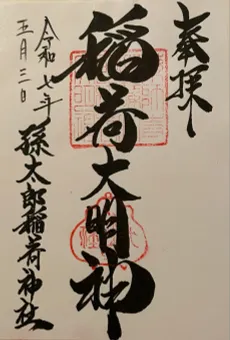 奉拝
稲荷大明神
孫太郎稲荷神社
令和七年
五月三日